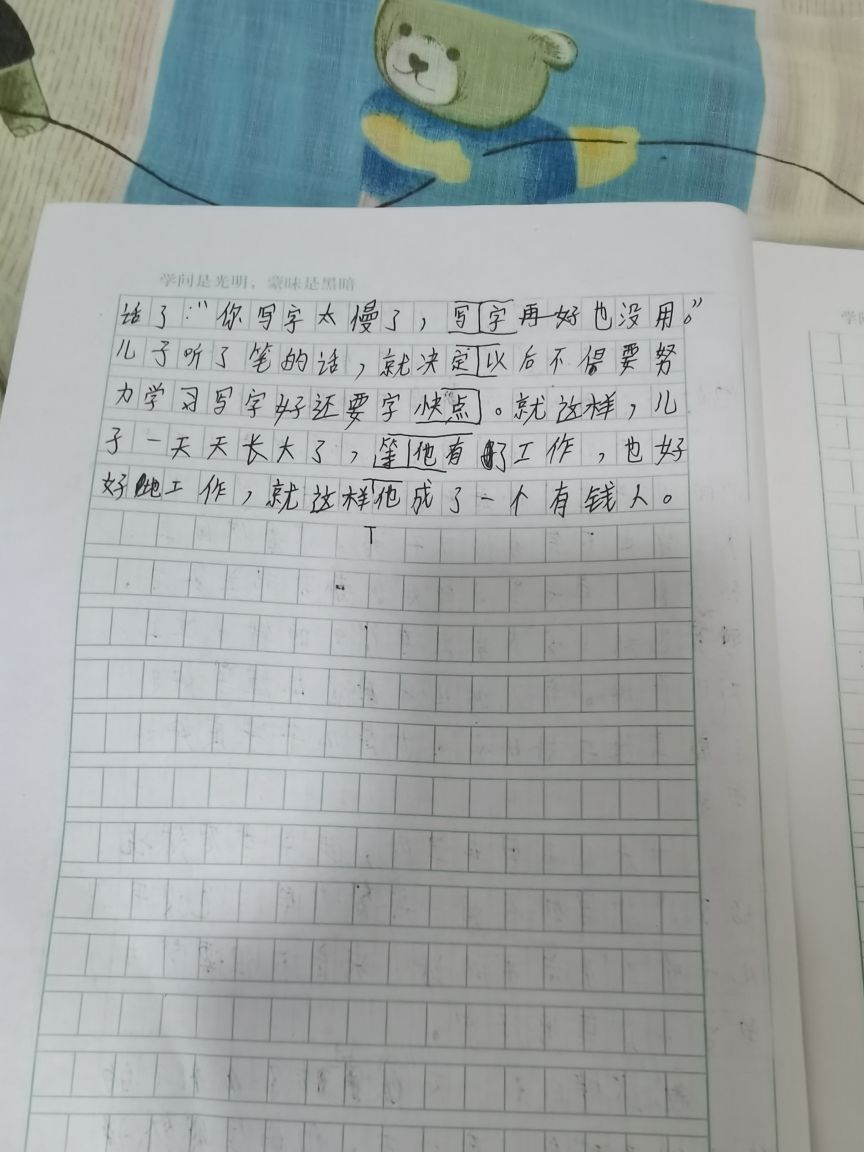 学问是光明，蒙昧是黑暗
话了："你写字太慢了，写字再好也没用。"
儿子听了笔的话，就决定以后不但要努
力学习写字好还要字快点。就这样，儿
子一天天长大了，等他有了工作，也好
好地工作，就这样他成了一个有钱人。
学问